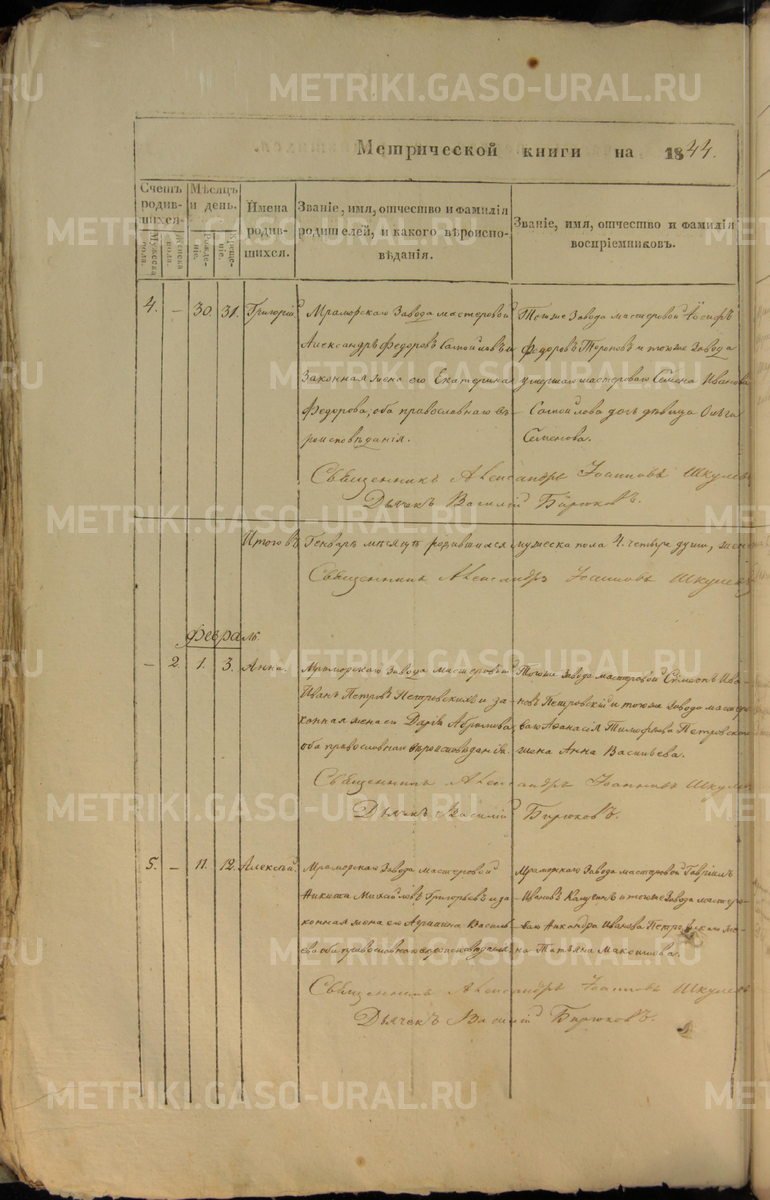 METRIKI.GASO-URAL.RU
Метрической книги на 1844.
Счетъ родив-шихся.
Мужеска пола.
Женска пола.
Мѣсяцъ и день.
Рожде-ніе.
Креще-ніе.
Имена родив-шихся.
Званіе, имя, отчество и фамилія родителей, и какого вѣроиспо-вѣданія.
Званіе, имя, отчество и фамилія воспріемниковъ.
4. — 30. 31. Григорій
Мраморскаго Завода мастеровой
Александръ Федоровъ Самойловъ и
Законная жена его Екатерина
Федорова, оба православнаго вѣ-
роисповѣданія.
Тогоже Завода мастеровой Іосифъ
Федоровъ Тороповъ и тогоже Завода
умершаго мастероваго Семена Иванова
Самойлова дочь дѣвица Ольга
Семенова.
Священникъ Александръ Іоанновъ
Дьячекъ Василій Бирюковъ.
Итого въ Генварѣ мѣсяцѣ родившихся мужеска пола 4. четыре души,
Священникъ Александръ Іоанновъ
Февраль.
— 2. 1. 3. Анна.
Мраморскаго Завода мастеровой
Иванъ Петровъ Петровскихъ и за-
конная жена его Дарья Абрамова,
оба православнаго вѣроисповѣданія.
Тогоже Завода мастеровой Симеонъ Ива-
новъ Петровскій и тогоже Завода мастеро-
ваго Афанасія Тимофѣева
жена Анна Васильева.
Священникъ Александръ Іоанновъ
Дьячекъ Василій Бирюковъ.
5. — 11. 12. Алексѣй.
Мраморскаго Завода мастеровой
Никита Михайловъ Григорьевъ и за-
конная жена его Васильева
оба православнаго вѣроисповѣданія.
Мраморскаго Завода мастеровой Гавріилъ
Ивановъ и тогоже Завода мастеро-
ваго Никандра Иванова
Татьяна Максимова.
Священникъ Александръ Іоанновъ
Дьячекъ Василій Бирюковъ.